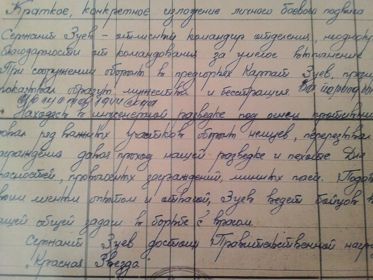 Краткое, конкретное изложение личного боевого подвига
Сержант Зуев - отличный командир отделения, неоднокр
благодарности от командования за умелое выполнение
При сооружении оборон в предгорьях Карпат Зуев, прош
показал образцы мужества и бесстрашия.
Находясь в инженерной разведке под огнем противник
ряд важных участков оборон немцев, перерезывал
заграждения давая проход нашей разведке и пехоте. Для
препятствий, проволочных заграждений, минных полей.
своим личным опытом и отвагой, Зуев ведет бойцов в
щей общей задачи в борьбе с врагом.
Сержант Зуев достоин Правительственной нагр
Красная Звезда